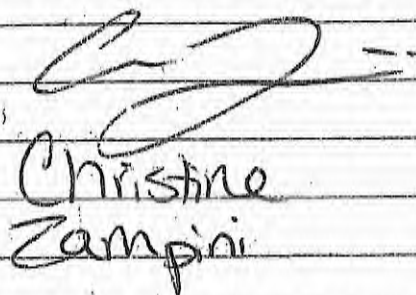 Christine
Zampini